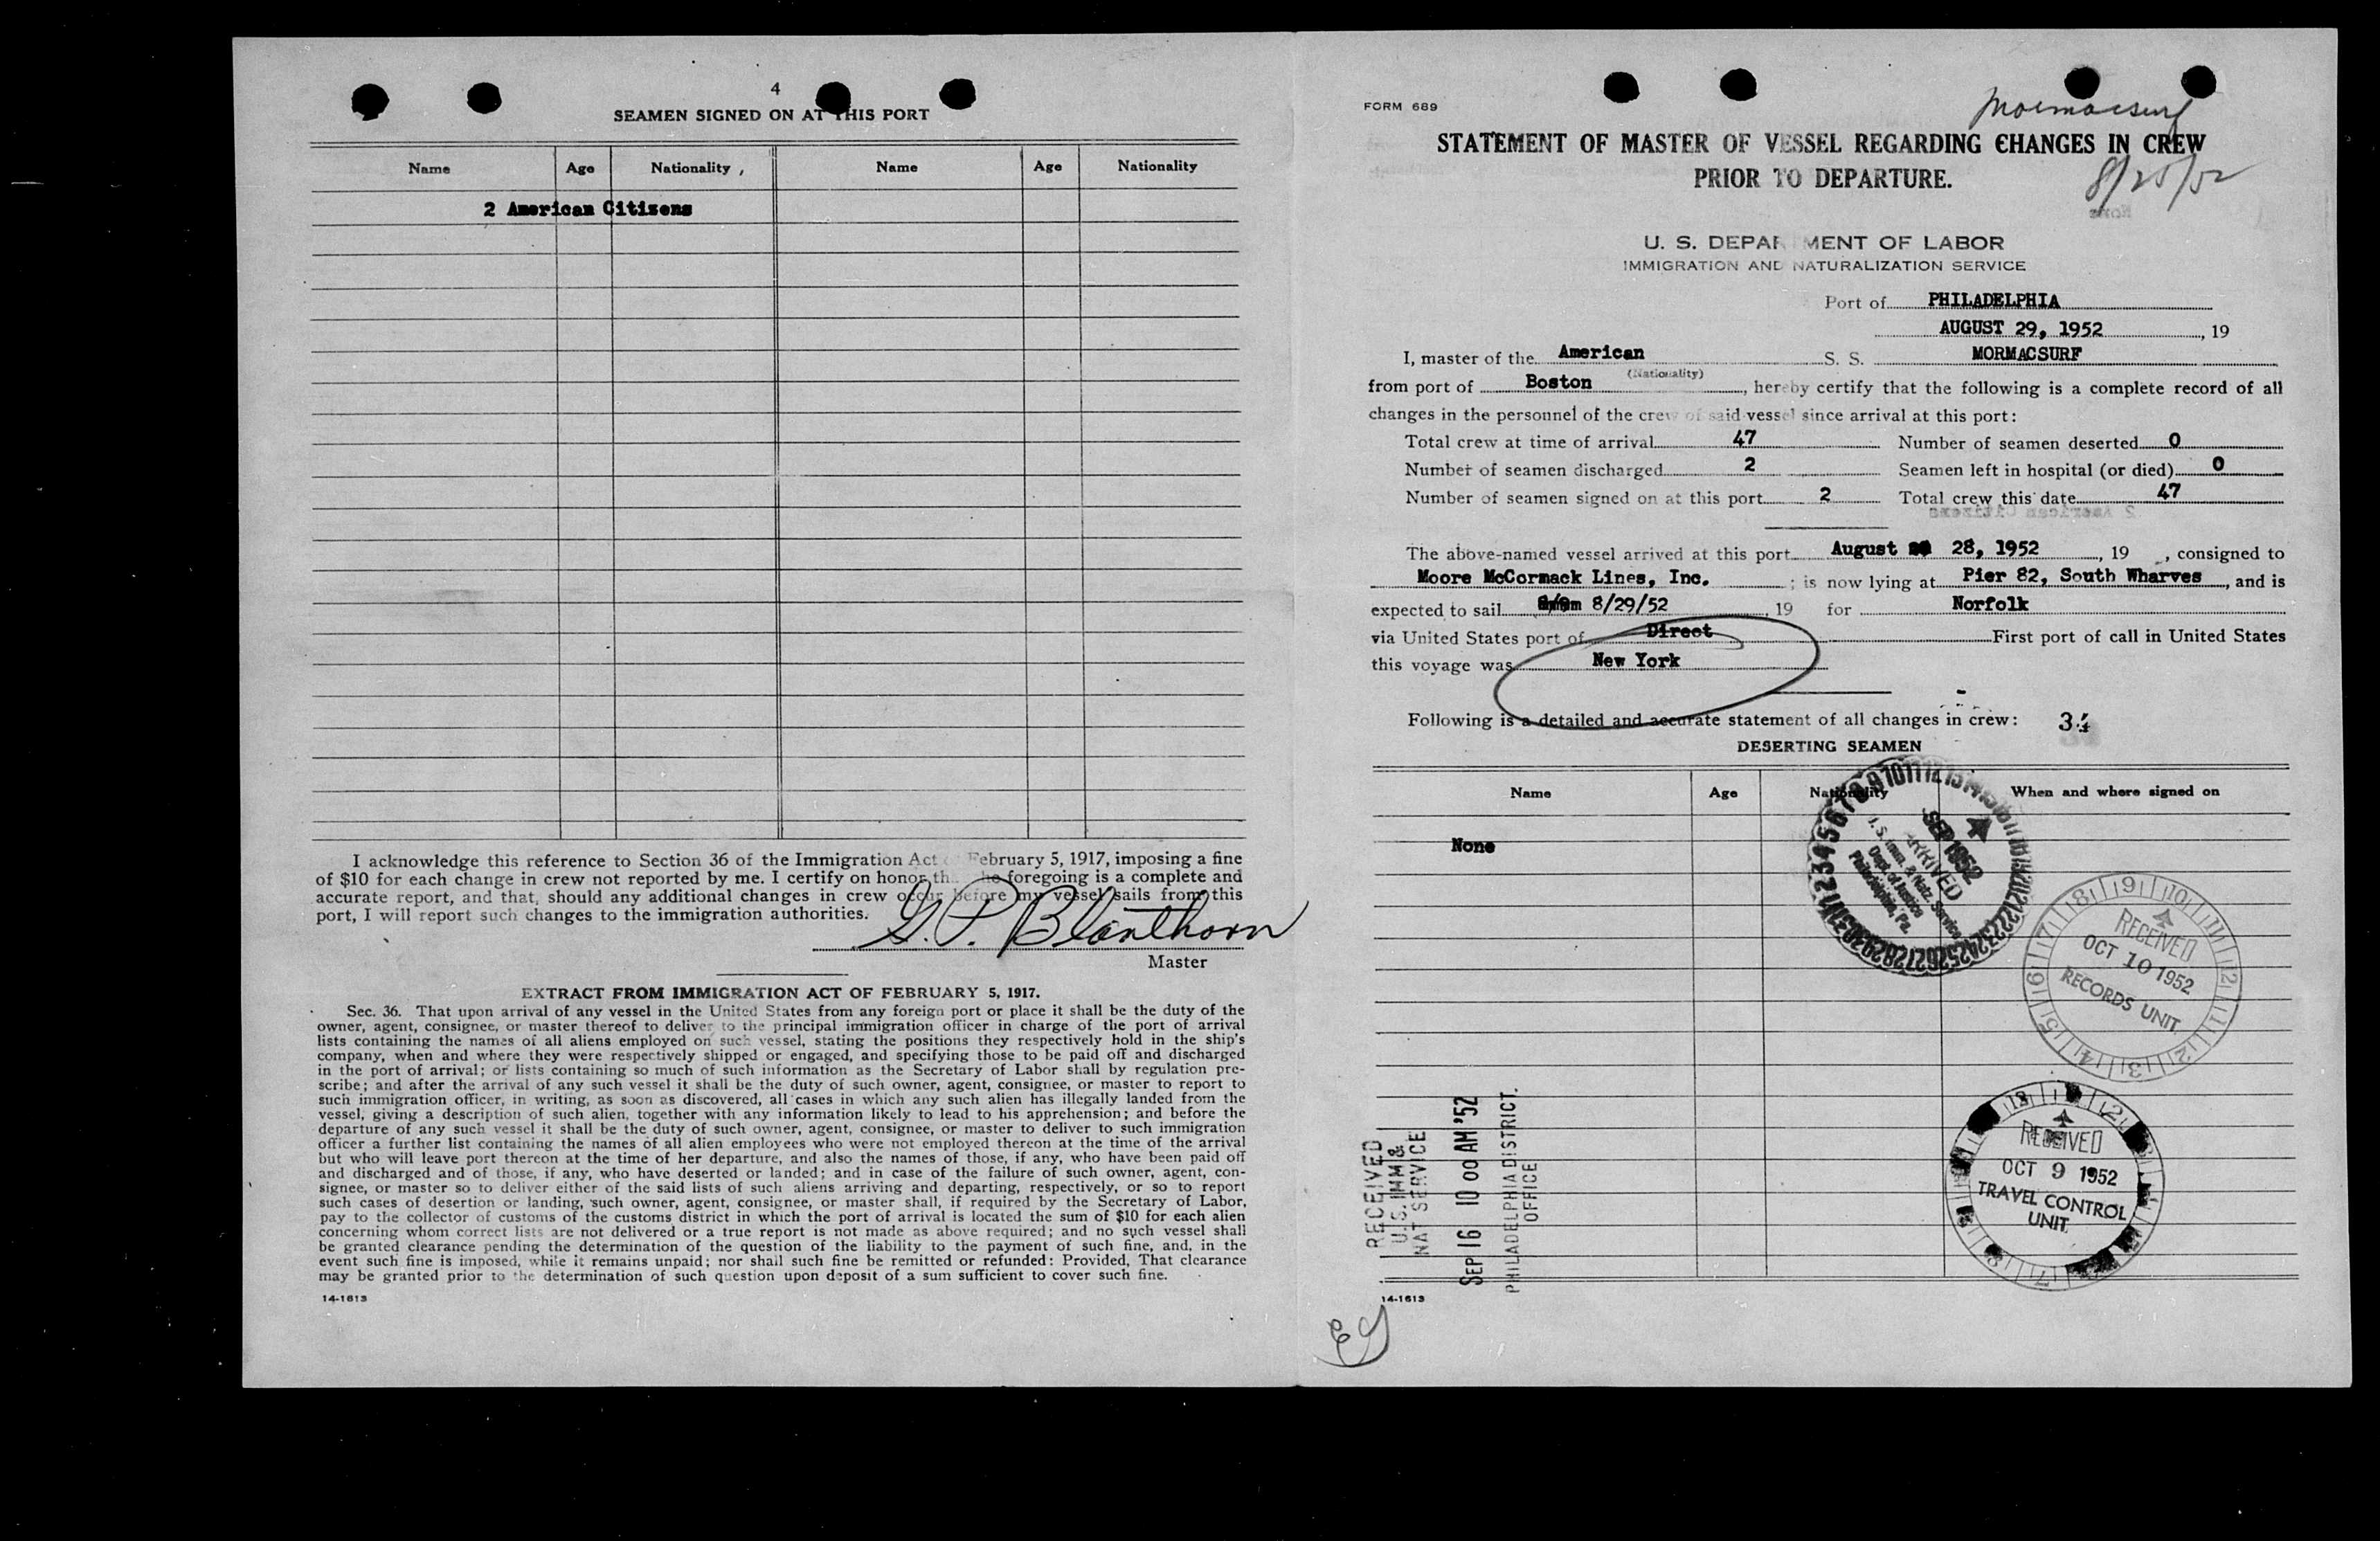 4
SEAMEN SIGNED ON AT THIS PORT
Name Age Nationality Name Age Nationality
2 American Citizens
I acknowledge this reference to Section 36 of the Immigration Act February 5, 1917, imposing a fine
of $10 for each change in crew not reported by me. I certify on honor th he foregoing is a complete and
accurate report, and that, should any additional changes in crew occur before my vessel sails from this
port, I will report such changes to the immigration authorities.
G. P. Blanthorn
Master
EXTRACT FROM IMMIGRATION ACT OF FEBRUARY 5, 1917.
Sec. 36. That upon arrival of any vessel in the United States from any foreign port or place it shall be the duty of the
owner, agent, consignee, or master thereof to deliver to the principal immigration officer in charge of the port of arrival
lists containing the names of all aliens employed on such vessel, stating the positions they respectively hold in the ship's
company, when and where they were respectively shipped or engaged, and specifying those to be paid off and discharged
in the port of arrival; or lists containing so much of such information as the Secretary of Labor shall by regulation pre-
scribe; and after the arrival of any such vessel it shall be the duty of such owner, agent, consignee, or master to report to
such immigration officer, in writing, as soon as discovered, all cases in which any such alien has illegally landed from the
vessel, giving a description of such alien, together with any information likely to lead to his apprehension; and before the
departure of any such vessel it shall be the duty of such owner, agent, consignee, or master to deliver to such immigration
officer a further list containing the names of all alien employees who were not employed thereon at the time of the arrival
but who will leave port thereon at the time of her departure, and also the names of those, if any, who have been paid off
and discharged and of those, if any, who have deserted or landed; and in case of the failure of such owner, agent, con-
signee, or master so to deliver either of the said lists of such aliens arriving and departing, respectively, or so to report
such cases of desertion or landing, such owner, agent, consignee, or master shall, if required by the Secretary of Labor,
pay to the collector of customs of the customs district in which the port of arrival is located the sum of $10 for each alien
concerning whom correct lists are not delivered or a true report is not made as above required; and no such vessel shall
be granted clearance pending the determination of the question of the liability to the payment of such fine, and, in the
event such fine is imposed, while it remains unpaid; nor shall such fine be remitted or refunded: Provided, That clearance
may be granted prior to the determination of such question upon deposit of a sum sufficient to cover such fine.
14-1613
FORM 689
Mormacsurf
STATEMENT OF MASTER OF VESSEL REGARDING CHANGES IN CREW
PRIOR TO DEPARTURE.
8/25/52
U. S. DEPARTMENT OF LABOR
IMMIGRATION AND NATURALIZATION SERVICE
Port of PHILADELPHIA
AUGUST 29, 1952, 19
I, master of the American S. S. MORMACSURF
(Nationality)
from port of Boston, hereby certify that the following is a complete record of all
changes in the personnel of the crew of said vessel since arrival at this port:
Total crew at time of arrival 47 Number of seamen deserted 0
Number of seamen discharged 2 Seamen left in hospital (or died) 0
Number of seamen signed on at this port 2 Total crew this date 47
The above-named vessel arrived at this port August 28, 1952, 19 , consigned to
Moore McCormack Lines, Inc. ; is now lying at Pier 82, South Wharves, and is
expected to sail 8/29/52, 19 for Norfolk
via United States port of Direct First port of call in United States
this voyage was New York
Following is a detailed and accurate statement of all changes in crew: 34
DESERTING SEAMEN
Name Age Nationality When and where signed on
None
SEP 1952
ARRIVED
U.S. Imm. & Natz. Service
Dept. of Justice
Philadelphia, Pa.
RECEIVED
OCT 10 1952
RECORDS UNIT
RECEIVED
OCT 9 1952
TRAVEL CONTROL
UNIT.
RECEIVED
U.S. IMM &
NAT SERVICE
SEP 16 10 00 AM '52
PHILADELPHIA DISTRICT.
OFFICE
14-1613